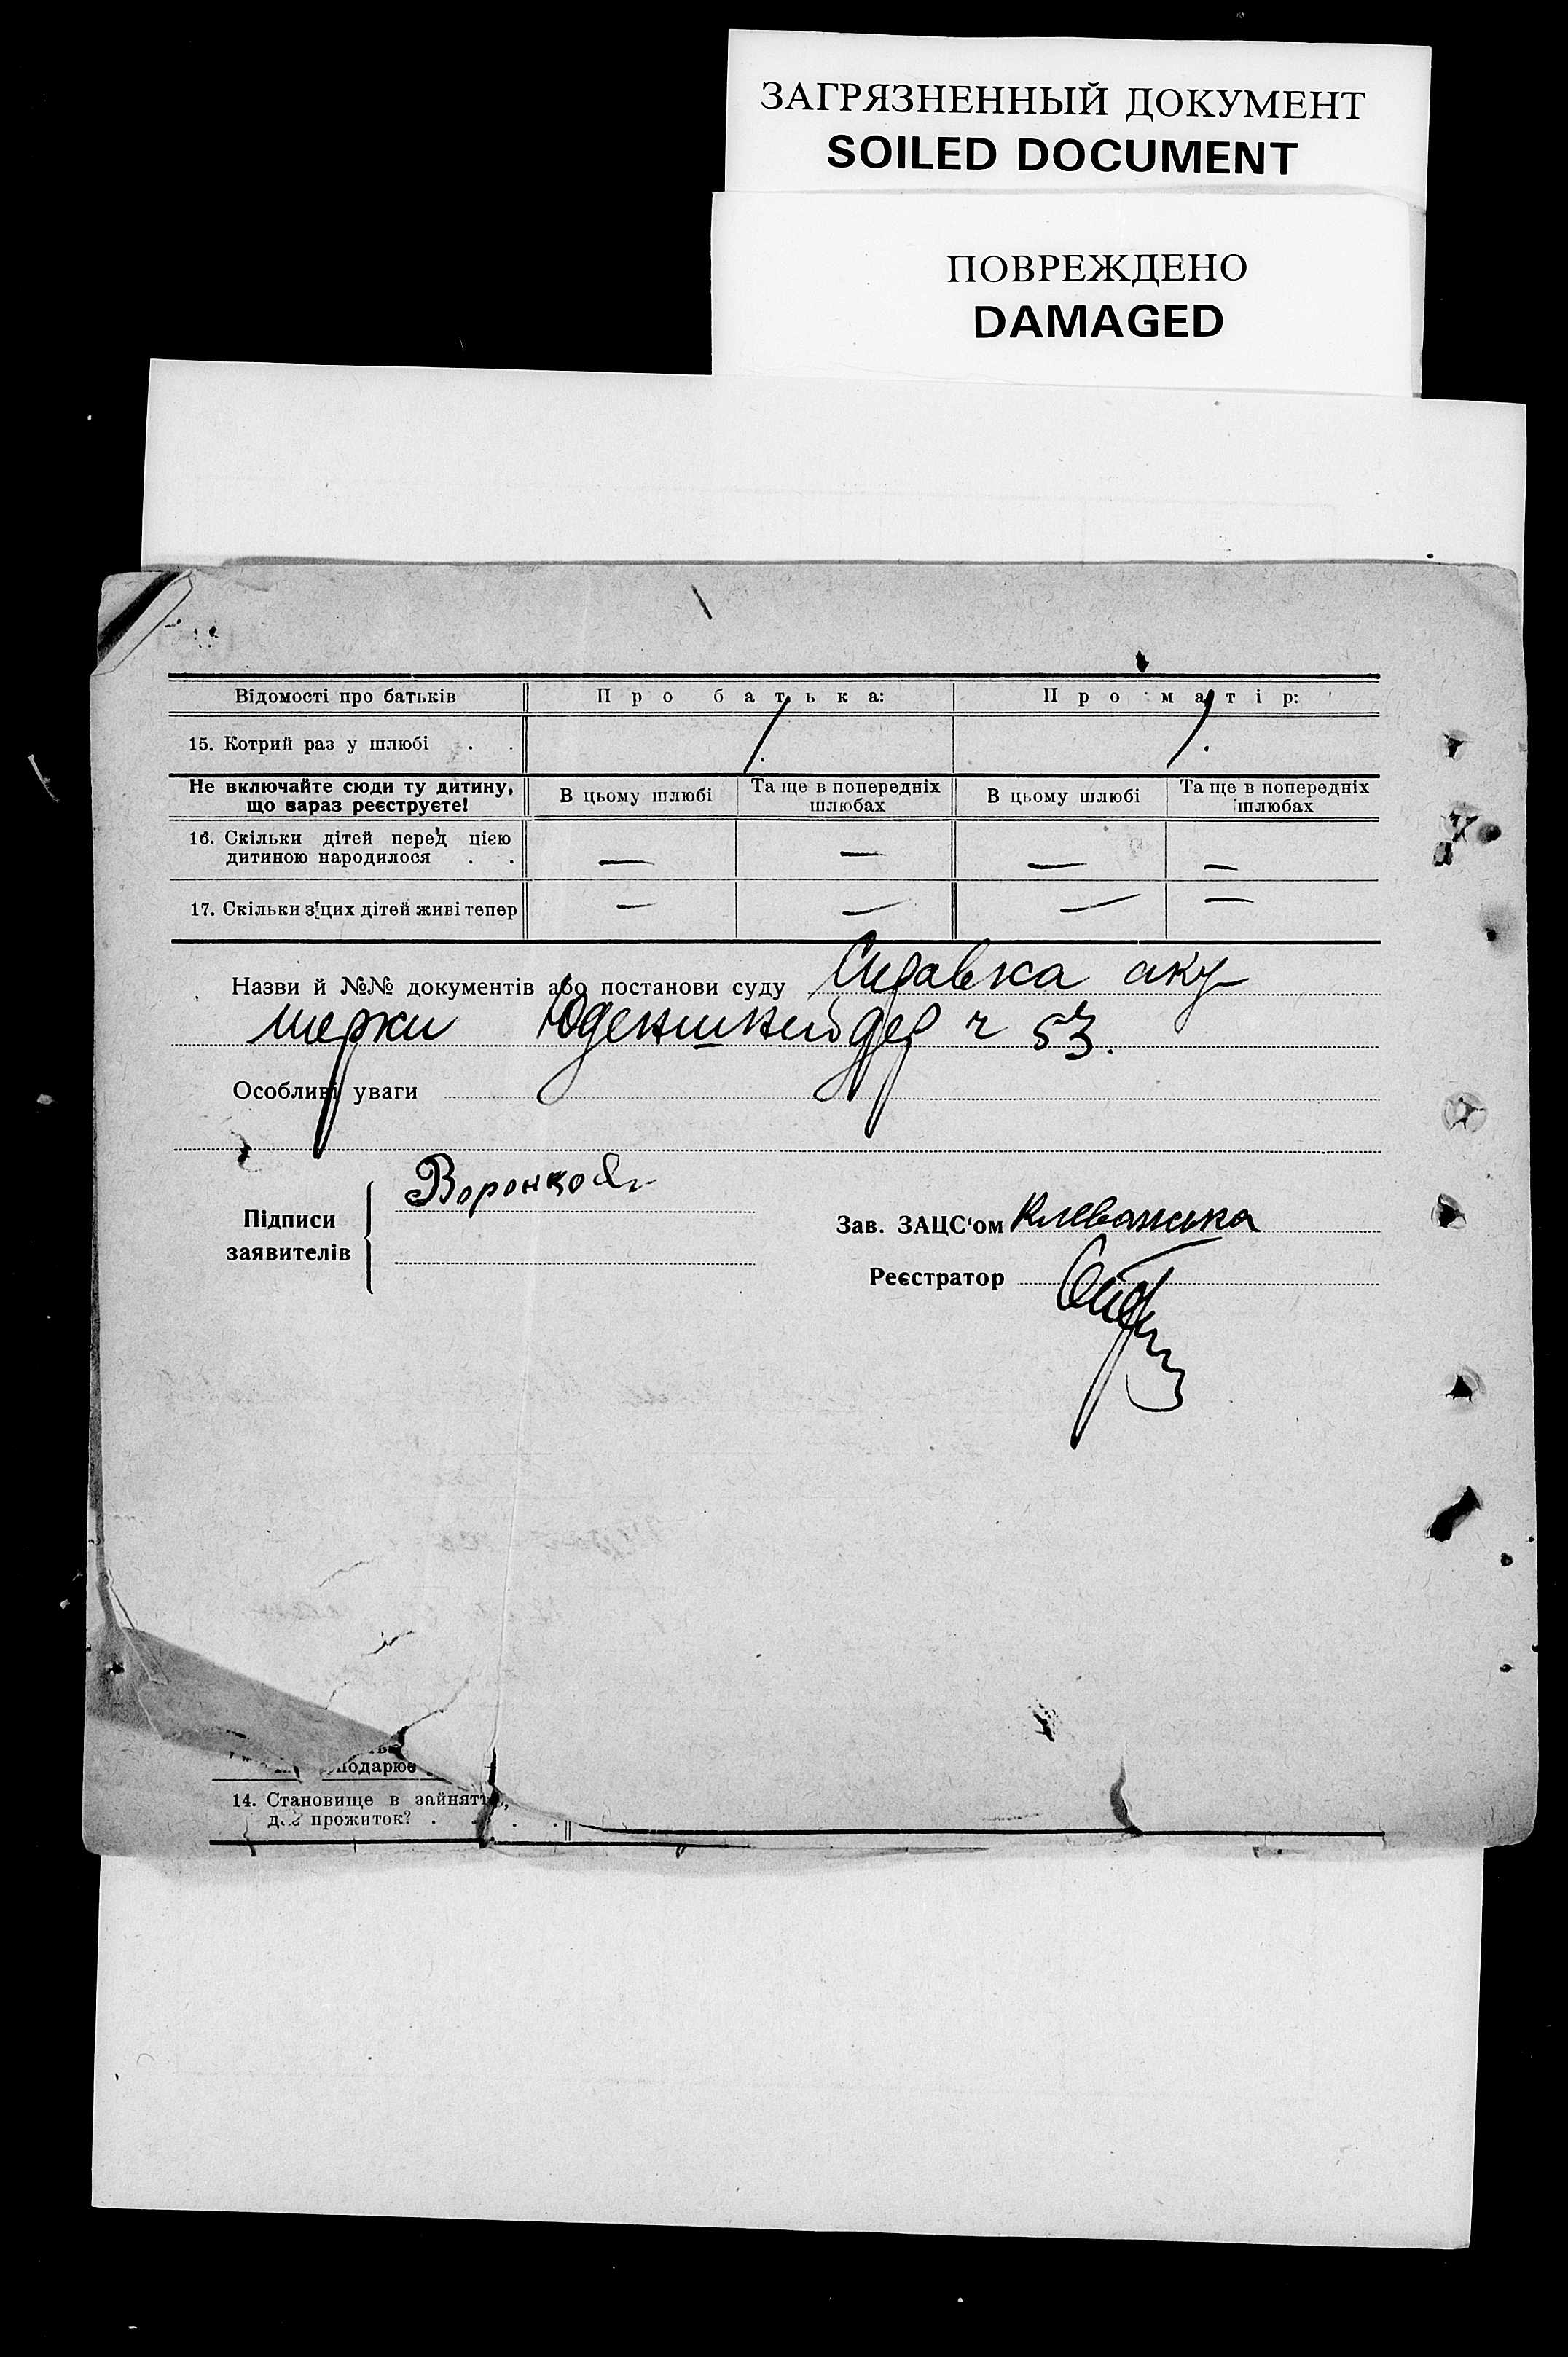 ЗАГРЯЗНЕННЫЙ ДОКУМЕНТ
SOILED DOCUMENT
ПОВРЕЖДЕНО
DAMAGED
Відомості про батьків Про батька: Про матір:
15. Котрий раз у шлюбі . . 1. 1.
Не включайте сюди ту дитину, що вараз реєструєте! В цьому шлюбі Та ще в попередніх шлюбах В цьому шлюбі Та ще в попередніх шлюбах
16. Скільки дітей перед цією
дитиною народилося . . — — — —
17. Скільки з цих дітей живі тепер — — — —
Назви й №№ документів або постанови суду Справка аку-
шерки ч 53.
Особливі уваги
Підписи
заявителів
Воронцов
Зав. ЗАЦС'ом Клеванська
Реєстратор
подарює
14. Становище в занятті,
прожиток? . . . .